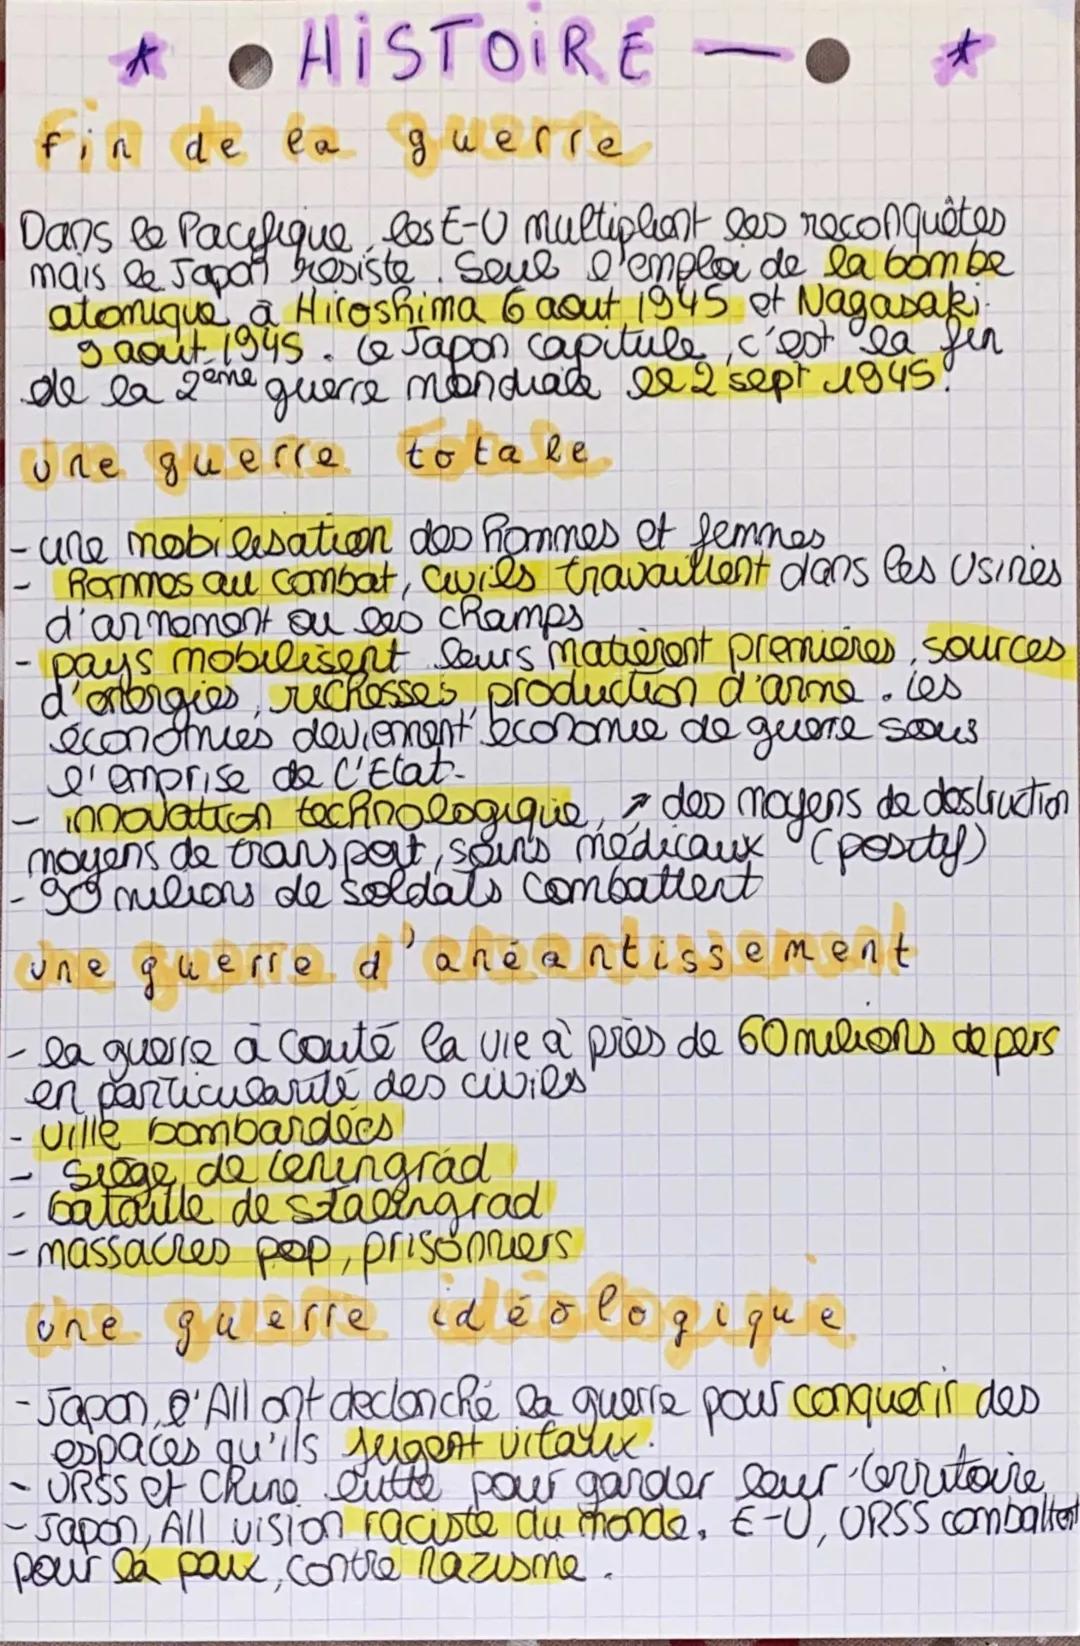 * HiSTOiRE — *
fin de la guerre
Dans le Pacifique, les E-U multiplient les reconquêtes
mais le Japon résiste. Seul l'emploi de la bombe
atomique à Hiroshima 6 aout 1945 et Nagasaki
9 août 1945. Le Japon capitule, c'est la fin
de la 2ème guerre mondiale le 2 sept 1945.
une guerre totale
- une mobilisation des hommes et femmes
- Hommes au combat, civils travaillent dans les usines
d'armement ou les champs
- pays mobilisent leurs matièrent premières, sources
d'énergies, richesses, production d'arme. les
économies deviennent économie de guerre sous
l'emprise de l'Etat.
- innovation technologique, ↗ des moyens de destruction
moyens de transport, soins médicaux (positif)
- 90 milions de soldats combattent
une guerre d'anéantissement
- la guerre à couté la vie à près de 60 milions de pers
en particularité des civiles
- ville bombardées
- Siège de Leningrad
- bataille de stalingrad
- massacres pop, prisonniers
une guerre idéologique
- Japon, l'All ont declenché la guerre pour conquerir des
espaces qu'ils jugent vitaux.
- URSS et Chine lutte pour garder leur territoire
- Japon, All vision raciste du monde. E-U, URSS combattent
pour la paix, contre nazisme.